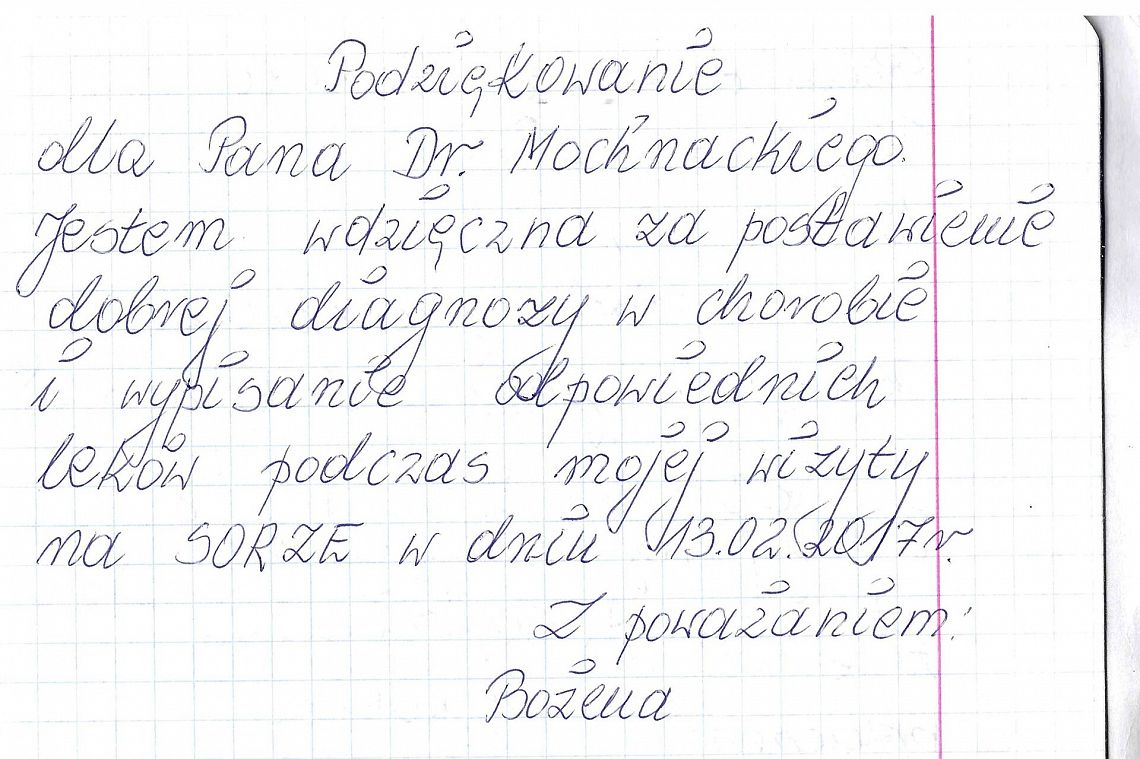 Podziękowanie
dla Pana Dr. Mochnackiego.
Jestem wdzięczna za postawienie
dobrej diagnozy w chorobie
i wypisanie odpowiednich
leków podczas mojej wizyty
na SORZE w dniu 13.02.2017r.
Z poważaniem:
Bożena